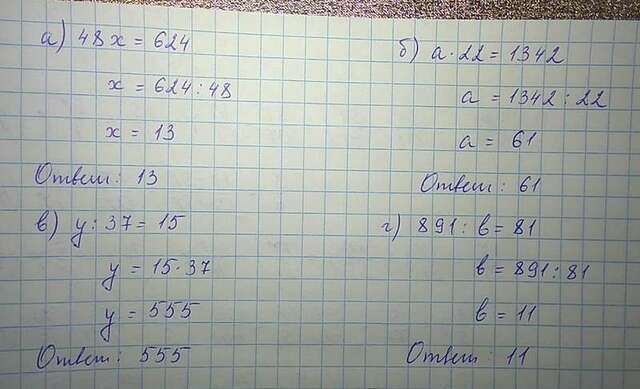 а) 48x = 624
x = 624 : 48
x = 13
Ответ: 13
б) a · 22 = 1342
a = 1342 : 22
a = 61
Ответ: 61
в) y : 37 = 15
y = 15 · 37
y = 555
Ответ: 555
г) 891 : b = 81
b = 891 : 81
b = 11
Ответ: 11